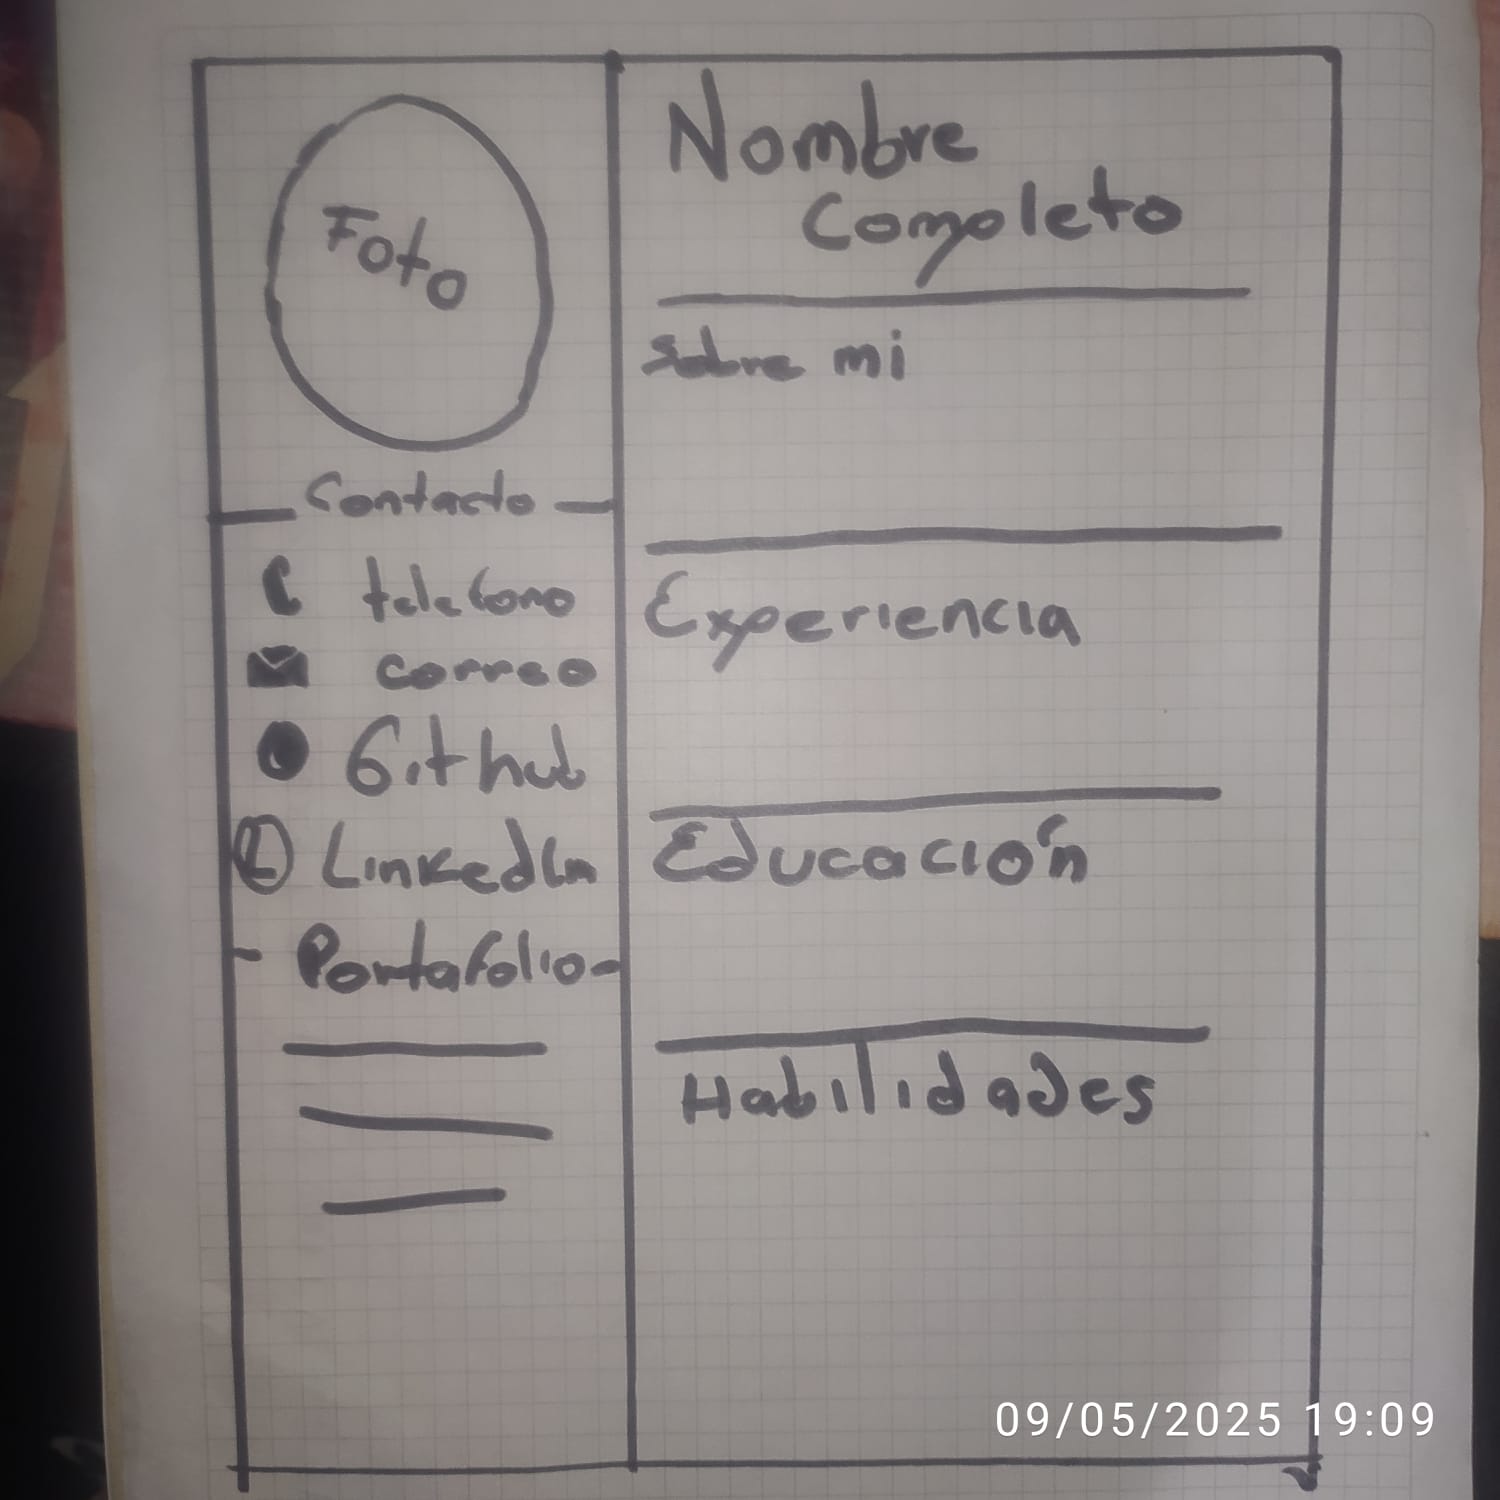 Foto
Contacto
telefono
correo
Github
L LinkedIn
Portafolio
Nombre
Completo
Sobre mi
Experiencia
Educación
Habilidades
09/05/2025 19:09